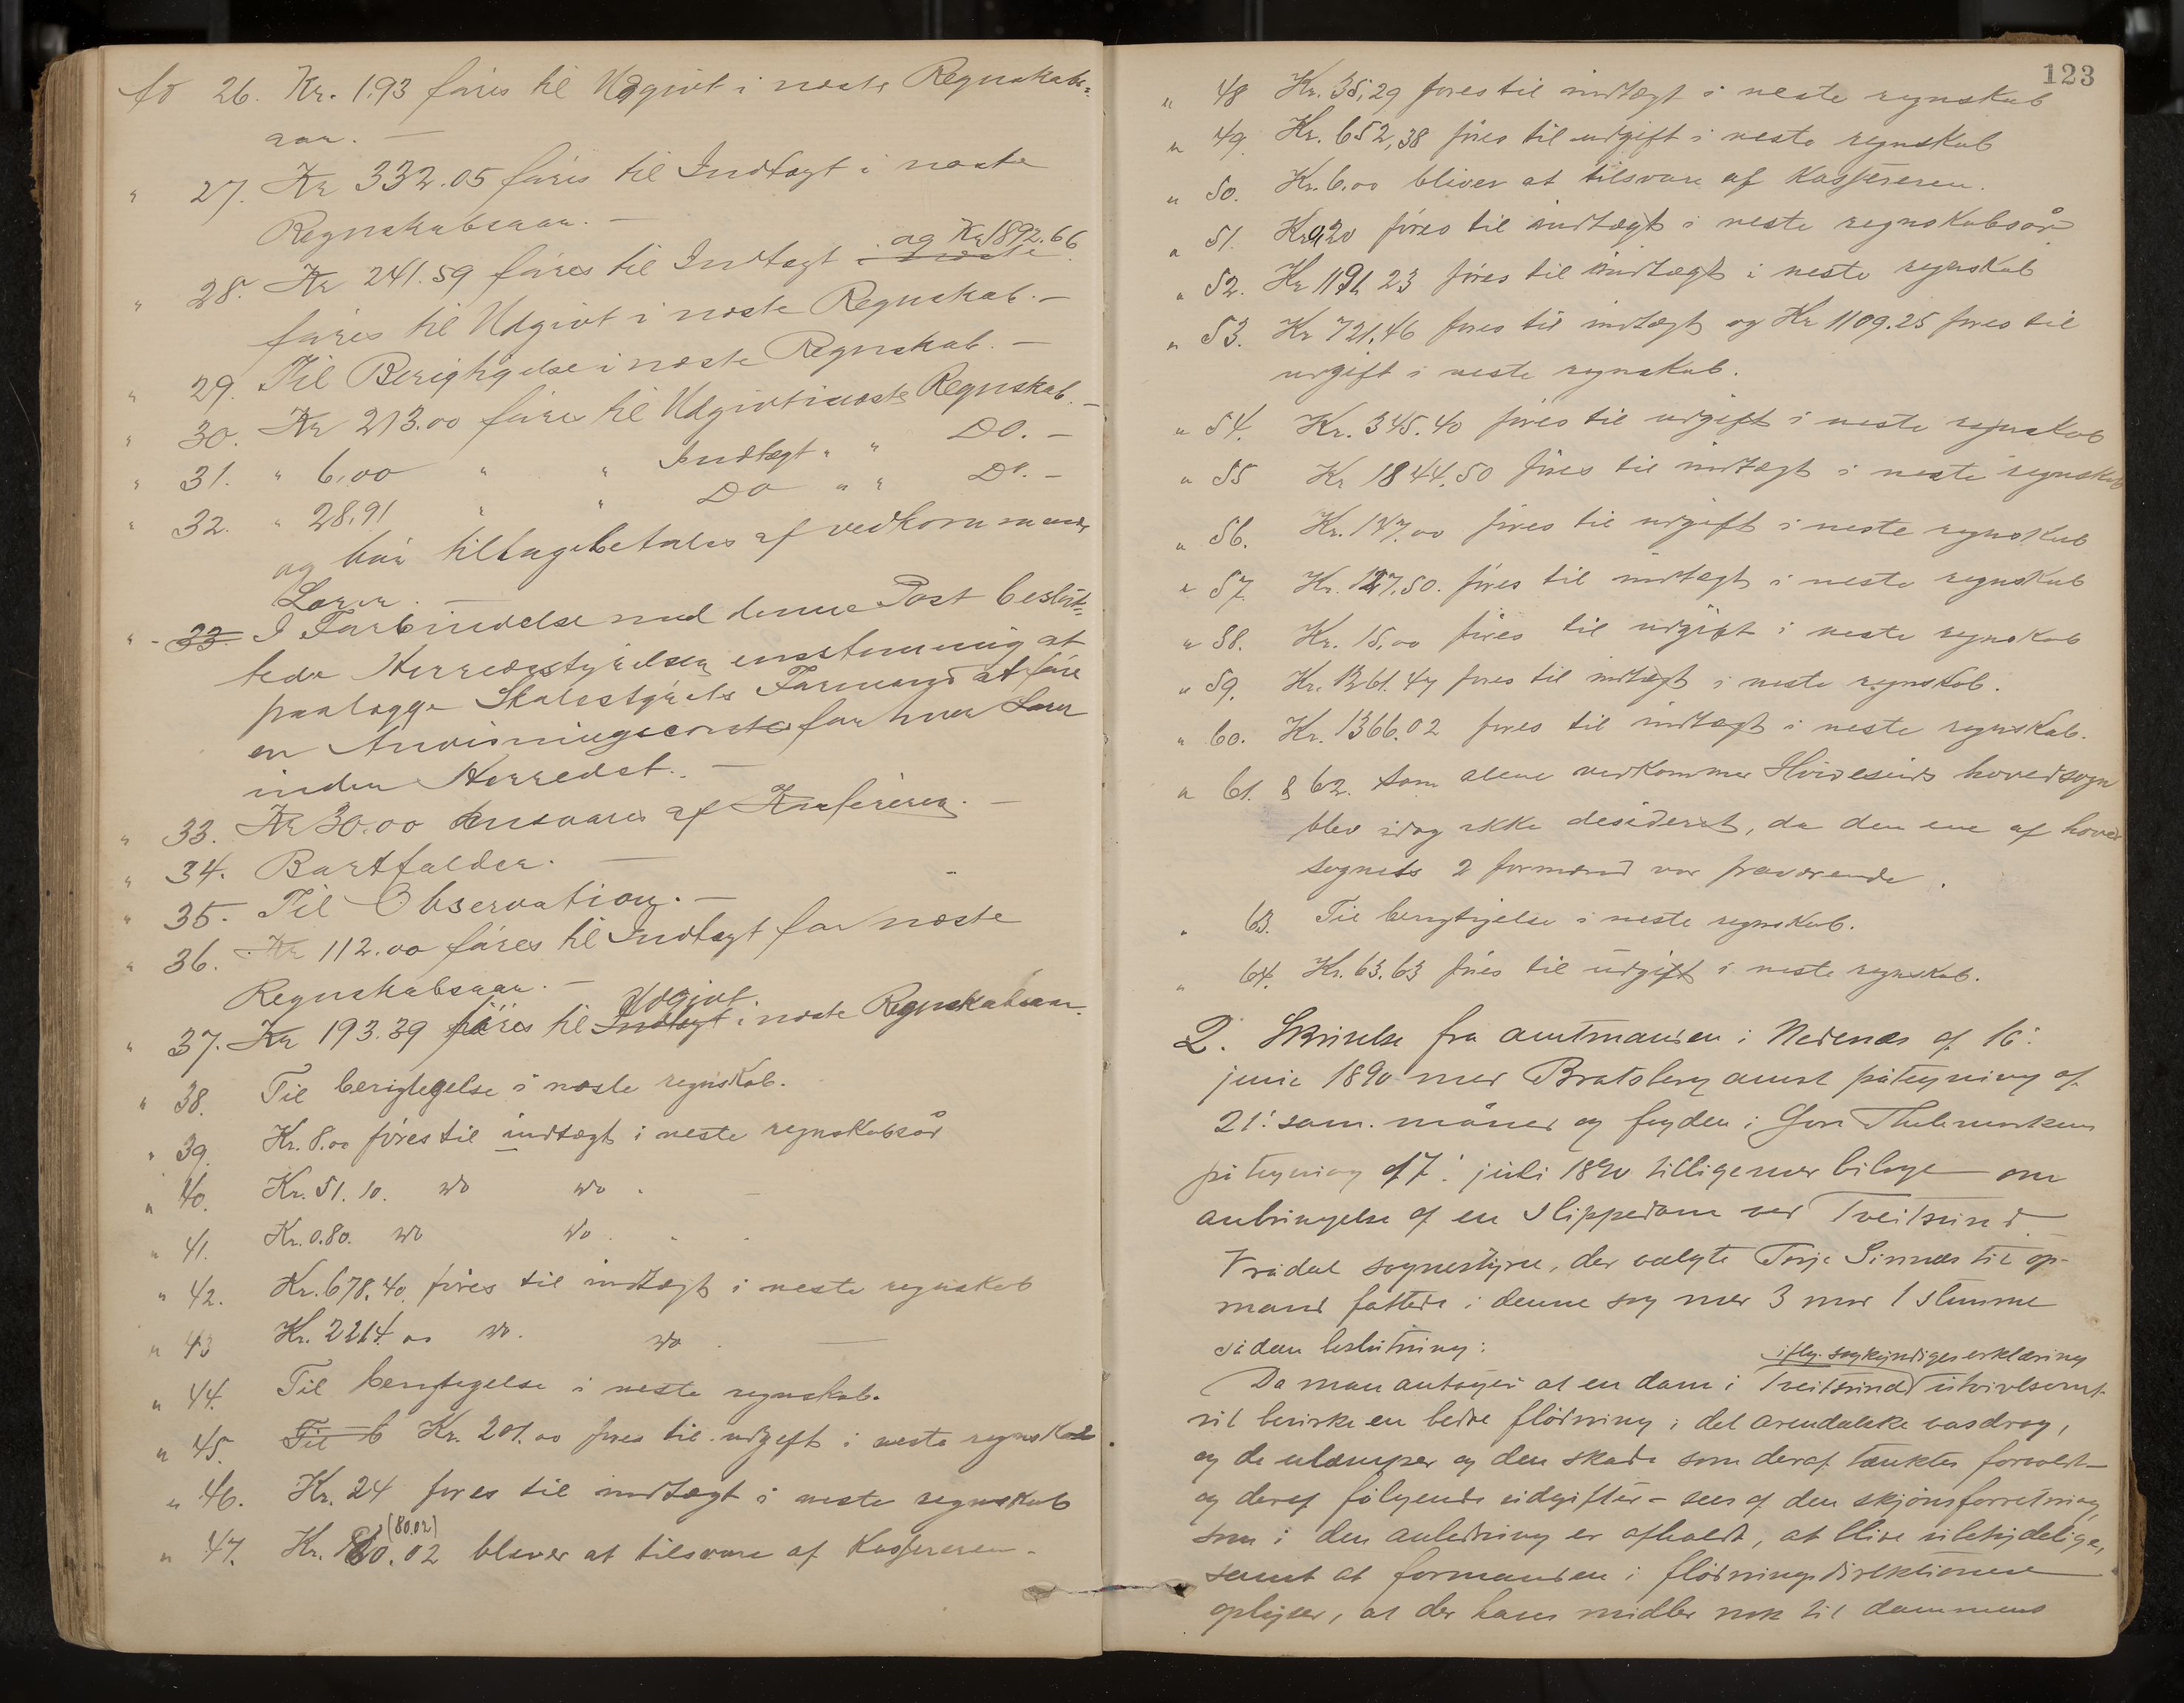 26. Kr. 1.93 føres til Udgivt i næste Regnskabs-
aar. —
" 27. Kr 332.05 føres til Indtægt i næste
Regnskabsaar. —
og Kr 1892.66
" 28. Kr 241.59 føres til Indtægt i næste
føres til Udgivt i næste Regnskab. —
" 29. Til Berigtigelse i næste Regnskab. —
" 30. Kr 213.00 føres til Udgivt i næste Regnskab. —
" 31. " 6,00 " " Indtægt " " Do. —
" 32. " 28.91 " " Do " " Do. —
og bør tilbagebetales af vedkommende
Lærer. —
" - 33. I Forbindelse med denne Post beslut-
tede Herredsstyrelsen enstemmig at
paalægge Skolestyrets Formand at føre
en Anvisnings for hver Lærer
inden Herredet. —
" 33. Kr 30.00 ansvares af Kasereren. —
" 34. Bortfalder. —
" 35. Til Observation. —
" 36. Kr 112.00 føres til Indtægt for næste
Regnskabsaar. —
Udgivt.
" 37. Kr 193.39 føres til Indtægt i næste Regnskabsaar.
" 38. Til berigtegelse i næste regnskab.
" 39. Kr. 8.00 føres til indtægt i neste regnskabsår
" 40. Kr. 51.10. do do.
" 41. Kr. 0.80. do do.
" 42. Kr. 678.40. føres til indtægt i neste regnskab
" 43 Kr. 2214.00 do. do. —
" 44. Til berigtegelse i neste regnskab.
" 45. Til b Kr. 201.00 føres til udgift i neste regnskab
" 46. Kr. 24 føres til indtægt i neste regnskab
(80.02)
" 47. Kr. 80.02 bliver at tilsvare af Kassereren.
123
" 48 Kr. 35,29 føres til indtægt i neste regnskab
" 49. Kr. 652,38 føres til udgift i neste regnskab
" 50. Kr. 6.00 bliver at tilsvare af Kassereren.
" 51. Kr 0,20 føres til indtægt i neste regnskabsår
" 52. Kr 1191.23 føres til indtægt i neste regnskab
" 53. Kr 721.46 føres til indtægt og Kr 1109.25 føres til
udgift i neste regnskab.
" 54. Kr. 345.40 føres til udgift i neste regnskab
" 55 Kr 1844.50 føres til indtægt i neste regnskab
" 56. Kr. 147.00 føres til udgift i neste regnskab
" 57. Kr. 127.50. føres til indtægt i neste regnskab
" 58. Kr. 15,00 føres til udgift i neste regnskab
" 59. Kr. 1261.47 føres til indtægt i neste regnskab.
" 60. Kr. 1366.02 føres til indtægt i neste regnskab.
" 61. & 62. som alene vedkommer Hvideseids hovedsogn
blev idag ikke desideret, da den ene af hoved
sognets 2 formænd var fraværende.
" 63. Til berigtigelse i neste regnskab.
" 64. Kr. 63.63 føres til udgift i neste regnskab.
2. Skrivelse fra amtmanden i Nedenæs af 16:
junie 1890 med Bratsberg amts påtegning af
21: sam. måned og fogden i Øvre Thelemarkens
påtegning af 7: juli 1890 tilligemed bilage om
anbringelse af en slippedam ved Tveitsund
Vrådal sognestyre, der valgte Torje Sinnes til op-
mand fattede i denne sag med 3 mod 1 stemme
sådan beslutning:
ifølg. sagkyndiges erklæring
Da man antager at en dam i Tveitsund utvivlsomt
vil bevirke en bedre flødning i det arendalske vasdrag,
og de ulæmper og den skade som deraf tænktes forvoldt —
og deraf følgende udgifter — sees af den skjønsforretning
som i den anledning er afholdt, at blive ubetydelige,
samt at formanden i flødningsdirektionen
oplyser, at der haves midler nok til dammens